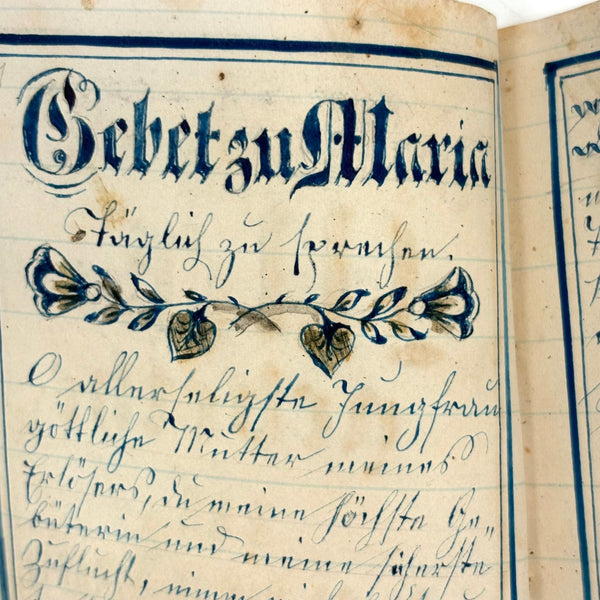 Gebet zu Maria
Täglich zu sprechen.
O allerseligste Jungfrau
göttliche Mutter meines
Erlösers, du meine höchste Ge„
büterin und meine sicherste
Zuflucht, nimm